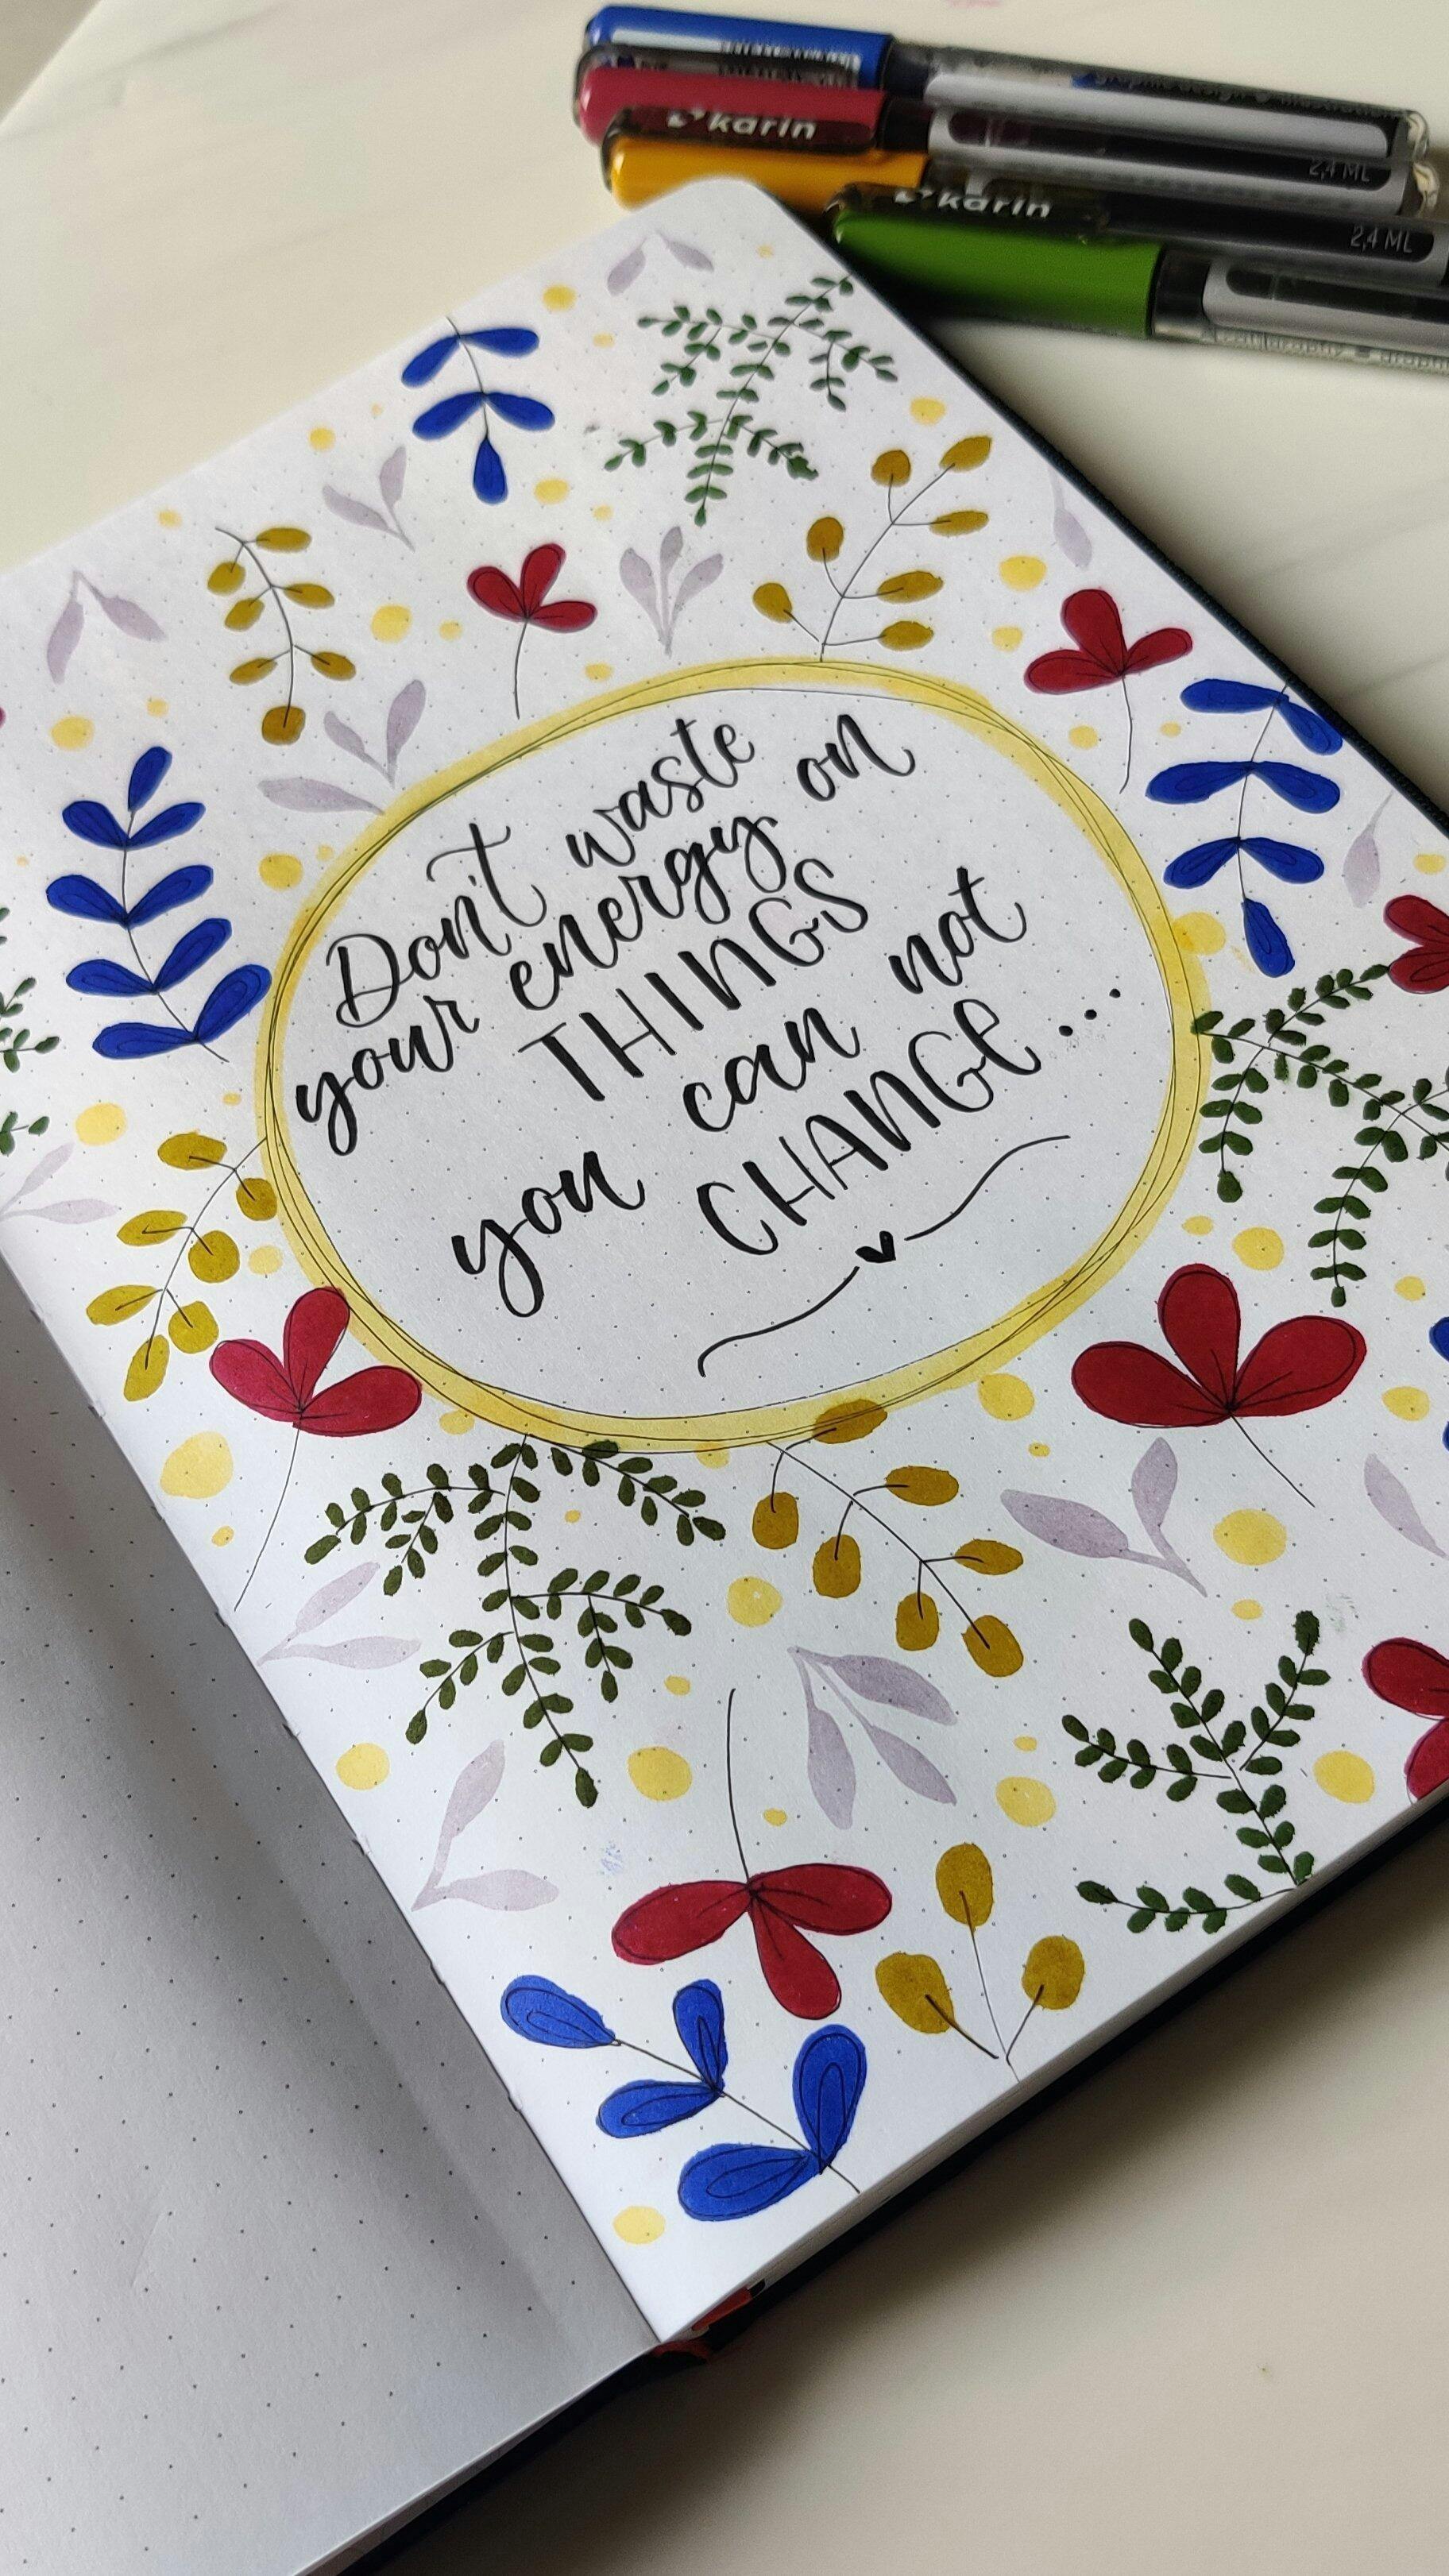 karin
2,4 ML
karin
2,4 ML
Don't waste
your energy on
THINGS
you can not
CHANGE...